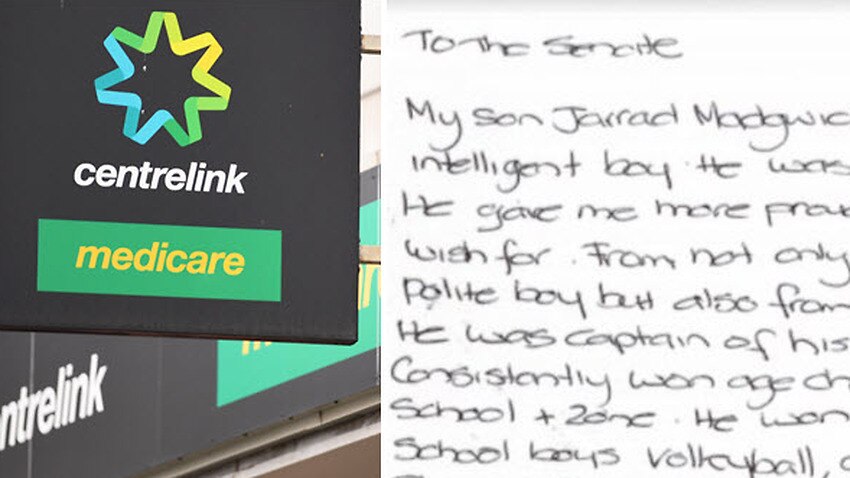 centrelink
medicare
ntrelink
To The Senate
My son Jarrad Madgwic
intelligent boy. He was
He gave me more prou
wish for. From not only
Polite boy but also from
He was captain of his
Consistently won age ch
School + Zone. He won
School boys volleyball,